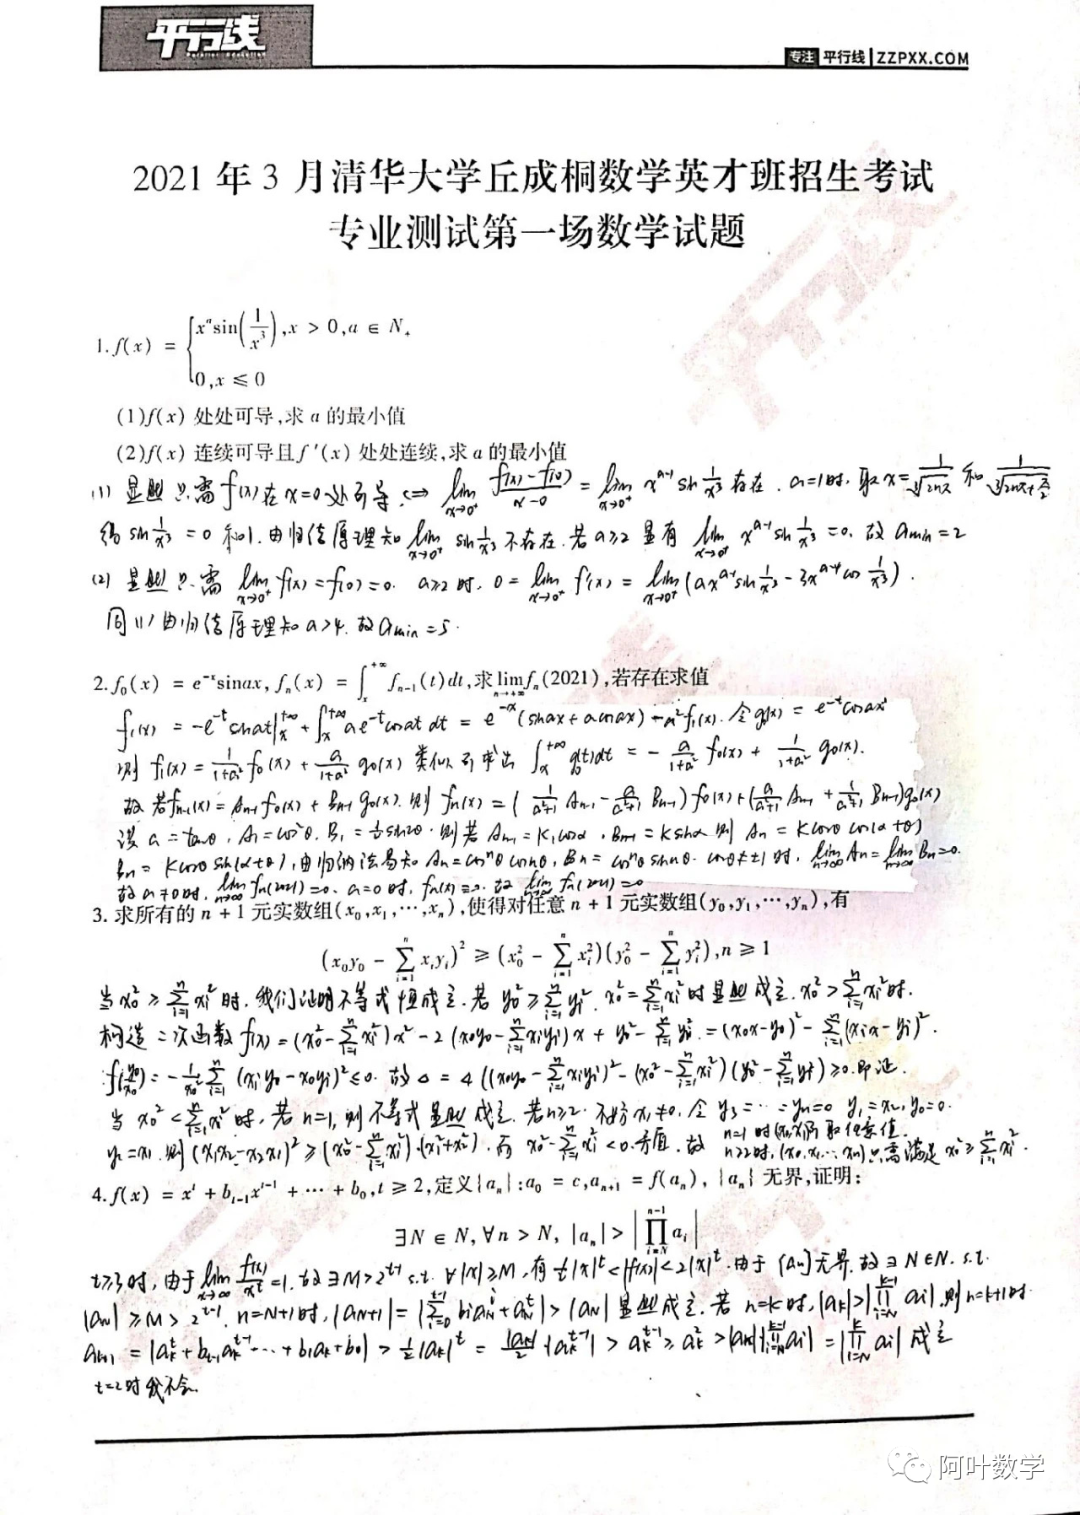 平行线
专注 平行线 | ZZPXX.COM
2021 年 3 月清华大学丘成桐数学英才班招生考试
专业测试第一场数学试题
1.f(x) = { xᵃsin(1/x³), x > 0, a ∈ N₊
0, x ≤ 0
(1)f(x) 处处可导,求 a 的最小值
(2)f(x) 连续可导且 f′(x) 处处连续,求 a 的最小值
(1) 显然只需f(x)在x=0处可导 ⟺ lim_{x→0⁺} (f(x)-f(0))/(x-0) = lim_{x→0⁺} x^{a-1} sin 1/x³ 存在. a=1时, 取x=
得 sin 1/x³ = 0 和1. 由归结原理知 lim_{x→0⁺} sin 1/x³ 不存在. 若a≥2 显有 lim_{x→0⁺} x^{a-1} sin 1/x³ = 0. 故 a_min = 2
(2) 显然只需 lim_{x→0⁺} f′(x) = f′(0) = 0. a≥2时, 0 = lim_{x→0⁺} f′(x) = lim_{x→0⁺} (ax^{a-1} sin 1/x³ - 3x^{a-4} cos 1/x³).
同(1)由归结原理知 a>4. 故a_min = 5.
2.f₀(x) = e⁻ˣsinax, fₙ(x) = ∫ₓ^{+∞} fₙ₋₁(t)dt,求 lim_{n→+∞} fₙ(2021),若存在求值
f₁(x) = -e⁻ᵗ sinat |ₓ^{+∞} + ∫ₓ^{+∞} ae⁻ᵗcosat dt = e⁻ˣ(sinax + acosax) - a²f₁(x). 令g₀(x) = e⁻ˣcosax
则 f₁(x) = 1/(1+a²) f₀(x) + a/(1+a²) g₀(x) 类似可求出 ∫ₓ^{+∞} g₀(t)dt = - a/(1+a²) f₀(x) + 1/(1+a²) g₀(x).
故 若fₙ₋₁(x) = Aₙ₋₁f₀(x) + Bₙ₋₁g₀(x). 则 fₙ(x) = (1/(a²+1) Aₙ₋₁ - a/(a²+1) Bₙ₋₁)f₀(x) + (a/(a²+1) Aₙ₋₁ + 1/(a²+1) Bₙ₋₁)g₀(x)
设 a = tanθ, A₁ = cos²θ. B₁ = ½sin2θ. 则若 Aₙ₋₁ = Kcosα, Bₙ₋₁ = Ksinα 则 Aₙ = Kcosθcos(α+θ)
Bₙ = Kcosθsin(α+θ), 由归纳法易知 Aₙ = cosⁿθcosnθ, Bₙ = cosⁿθsinnθ. cosθ≠±1时, lim_{n→∞} Aₙ = lim_{n→∞} Bₙ = 0.
故 a≠0时, lim_{n→∞} fₙ(2021) = 0. a=0 时, fₙ(x)≡0. 故 lim_{n→∞} fₙ(2021) = 0
3. 求所有的 n + 1 元实数组(x₀,x₁,⋯,xₙ),使得对任意 n + 1 元实数组(y₀,y₁,⋯,yₙ),有
(x₀y₀ - Σᵢ₌₁ⁿ xᵢyᵢ)² ≥ (x₀² - Σᵢ₌₁ⁿ xᵢ²)(y₀² - Σᵢ₌₁ⁿ yᵢ²), n ≥ 1
当 x₀² ≥ Σᵢ₌₁ⁿ xᵢ² 时. 我们证明不等式恒成立. 若 y₀² ≥ Σᵢ₌₁ⁿ yᵢ². x₀² = Σᵢ₌₁ⁿ xᵢ² 时显然成立. x₀² > Σᵢ₌₁ⁿ xᵢ² 时.
构造二次函数 f(x) = (x₀² - Σᵢ₌₁ⁿ xᵢ²)x² - 2(x₀y₀ - Σᵢ₌₁ⁿ xᵢyᵢ)x + y₀² - Σᵢ₌₁ⁿ yᵢ² = (x₀x - y₀)² - Σᵢ₌₁ⁿ (xᵢx - yᵢ)².
f(y₀/x₀) = - 1/x₀² Σᵢ₌₁ⁿ (xᵢy₀ - x₀yᵢ)² ≤ 0. 故 Δ = 4((x₀y₀ - Σᵢ₌₁ⁿ xᵢyᵢ)² - (x₀² - Σᵢ₌₁ⁿ xᵢ²)(y₀² - Σᵢ₌₁ⁿ yᵢ²)) ≥ 0. 即证.
当 x₀² < Σᵢ₌₁ⁿ xᵢ² 时, 若 n=1, 则不等式显然成立. 若n≥2. 不妨 x₁≠0, 令 y₃ = ⋯ = yₙ = 0 y₁ = x₂, y₀ = 0.
y₂ = x₁. 则 (x₁x₂ - x₂x₁)² ≥ (x₀² - Σᵢ₌₁ⁿ xᵢ²)·(x₁² + x₂²). 而 x₀² - Σᵢ₌₁ⁿ xᵢ² < 0. 矛盾. 故 n=1 时(x₀,x₁)可取任意值.
n≥2时, (x₀,x₁,⋯,xₙ)只需满足 x₀² ≥ Σᵢ₌₁ⁿ xᵢ².
4.f(x) = xᵗ + b_{t-1}x^{t-1} + ⋯ + b₀, t ≥ 2,定义{aₙ}:a₀ = c, aₙ₊₁ = f(aₙ), {aₙ} 无界,证明:
∃N ∈ N, ∀n > N, |aₙ| > |∏ᵢ₌N^{n-1} aᵢ|
t≥3时, 由于 lim_{x→∞} f(x)/xᵗ = 1. 故∃M>2^{t-1} s.t. ∀|x|≥M, 有 ½|x|ᵗ < |f(x)| < 2|x|ᵗ. 由于 {aₙ}无界. 故∃N∈N. s.t.
|a_N| ≥ M > 2^{t-1}. n=N+1时, |a_{N+1}| = |Σᵢ₌₀^{t-1} bᵢa_Nⁱ + a_Nᵗ| > |a_N| 显然成立. 若 n=k时, |aₖ| > |∏ᵢ₌N^{k-1} aᵢ|, 则n=k+1时
aₖ₊₁ = |aₖᵗ + b_{t-1}aₖ^{t-1} + ⋯ + b₁aₖ + b₀| > ½|aₖ|ᵗ = |aₖ|/2 · |aₖ^{t-1}| > aₖ^{t-1} ≥ aₖ² > |aₖ||∏ᵢ₌N^{k-1} aᵢ| = |∏ᵢ₌N^k aᵢ| 成立
t=2时我不会.
阿叶数学